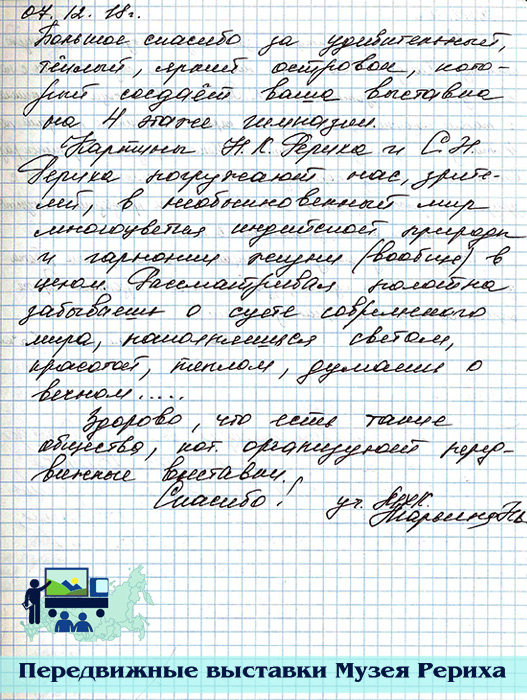 07.12.18г.
Большое спасибо за удивительный,
тёплый, яркий островок, кото-
рый создаёт ваша выставка
на 4 этаже гимназии.
Картины Н.К. Рериха и С.Н.
Рериха погружают нас, зрите-
лей, в необыкновенный мир
многоцветия индийской природы
и гармонии жизни (вообще) в
целом. Рассматривая полотна
забываешь о суете современного
мира, наполняешься светом,
красотой, теплом, думаешь о
вечном.....
Здорово, что есть такие
общества, кот. организуют перед-
вижные выставки.
Спасибо! уч.
Передвижные выставки Музея Рериха